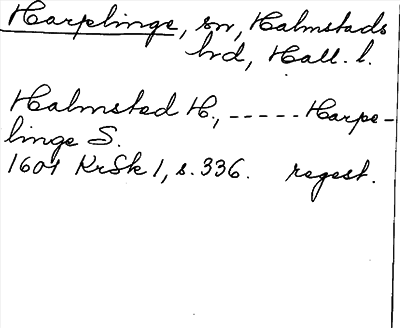 Harplinge, sn, Halmstads
hrd, Hall. l.
Halmsted H., ----- Harpe-
linge S.
1601 KrSk 1, s. 336. regest.